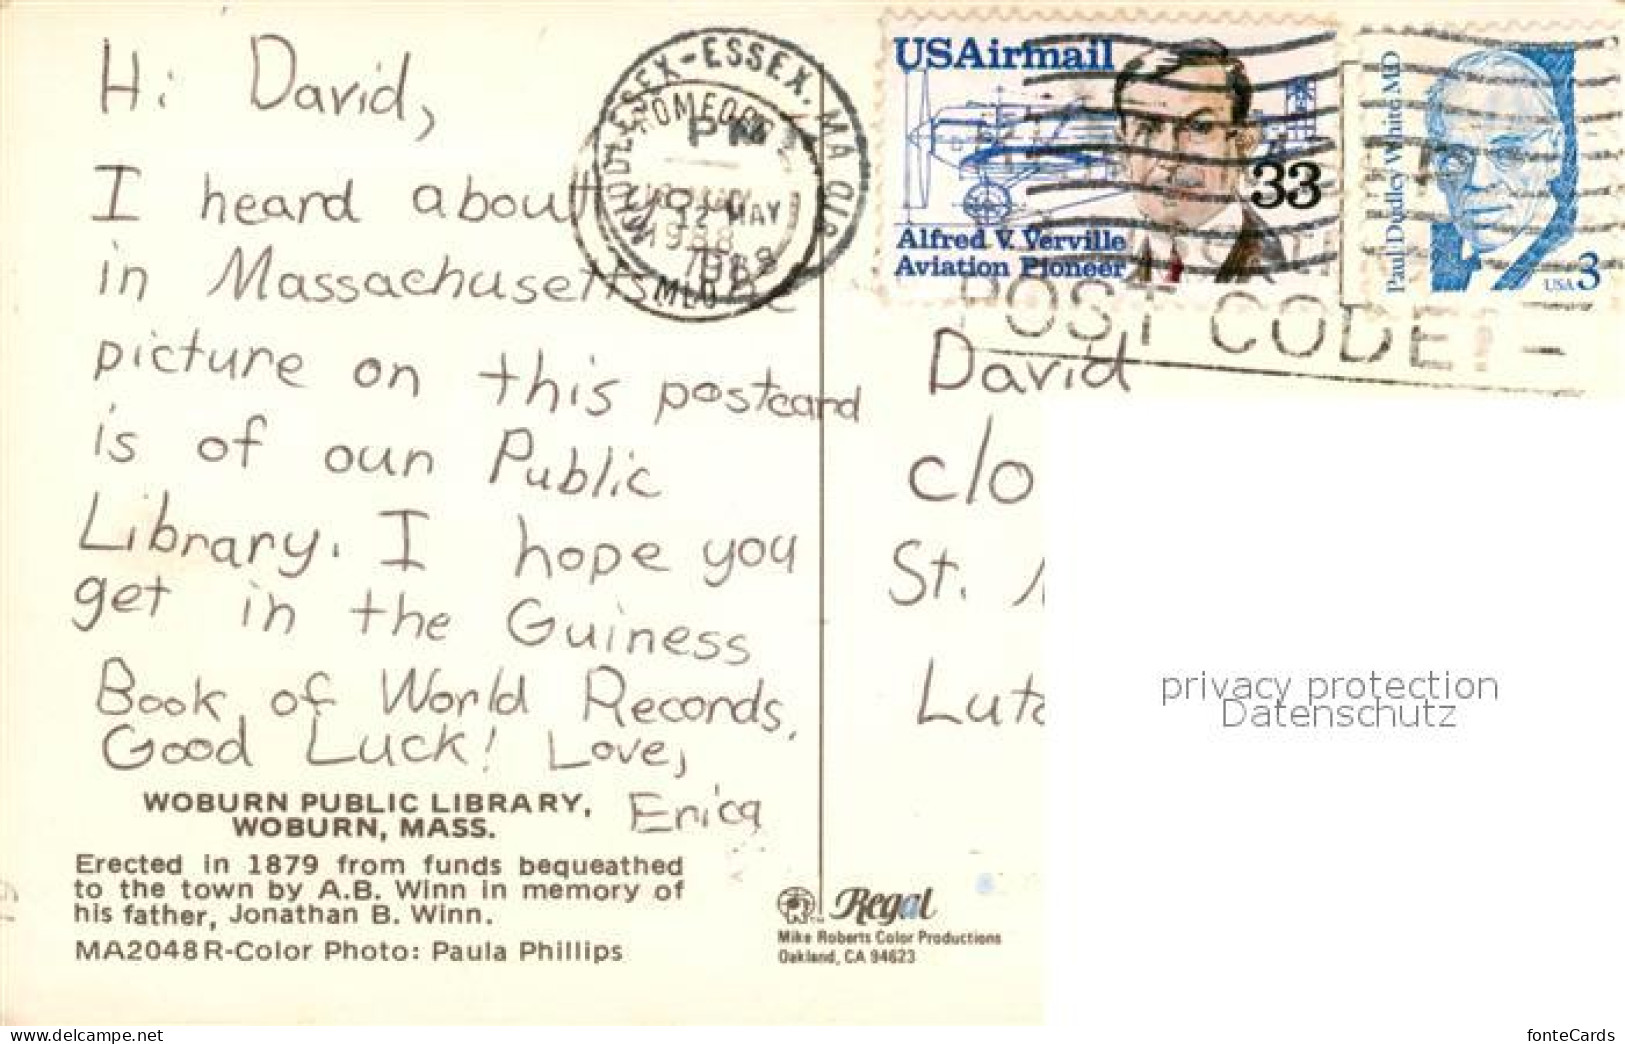 Hi David,
I heard about
in Massachusetts
picture on this postcard
is of our Public
Library. I hope you
get in the Guiness
Book of World Records.
Good Luck! Love,
Erica
WOBURN PUBLIC LIBRARY,
WOBURN, MASS.
Erected in 1879 from funds bequeathed
to the town by A.B. Winn in memory of
his father, Jonathan B. Winn.
MA2048 R-Color Photo: Paula Phillips
MIDDLESEX-ESSEX, MA
PM
12 MAY
1988
USAirmail
33
Alfred V. Verville
Aviation Pioneer
Paul Dudley White MD
USA 3
POST CODE
David
c/o
St.
Regal
Mike Roberts Color Productions
Oakland, CA 94623
privacy protection
Datenschutz
www.delcampe.net
fonteCards